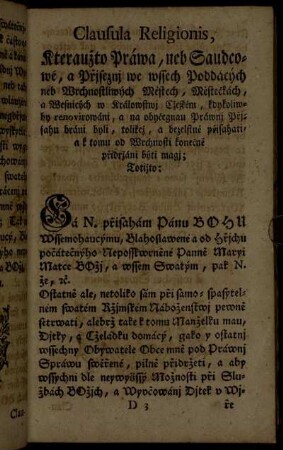 Clausula Religionis,
Kteraužto Práwa, neb Saudco-
wé, a Přjsežnj we wssech Poddacých
neb Wrchnostliwých Městech, Městečkách,
a Wesnicých w Králowstwj Cžeském, kdykoliw-
by renowirowáni, a na obyčegnau Práwnj Přj-
sahu bráni byli, tolikéž, a bezelstně přjsahati,
a k tomu od Wrchnosti konečně
přidržáni býti magj;
Totižto:
Já N. přisahám Pánu BOHU
Wssemohaucýmu, Blahoslawené a od Hřjchu
počátečnýho Neposskwrněné Panně Maryi
Matce BOžj, a wssem Swatým, pak N.
že, ꝛc.
Ostatně ale, netoliko sám při samo-spasytel-
ném swatém Ržjmském Náboženstwj pewně
setrwati, alebrž také k tomu Manželku mau,
Djtky, a Cželádku domácý, gako y ostatnj
wssechny Obywatele Obce mně pod Práwnj
Spráwu swěřené, pilně přidržeti, a aby
wssychni dle neywyšsý Možnosti při Slu-
žbách BOžjch, a Wyvčowánj Djtek v Wj-
D 3 ře
Clau-